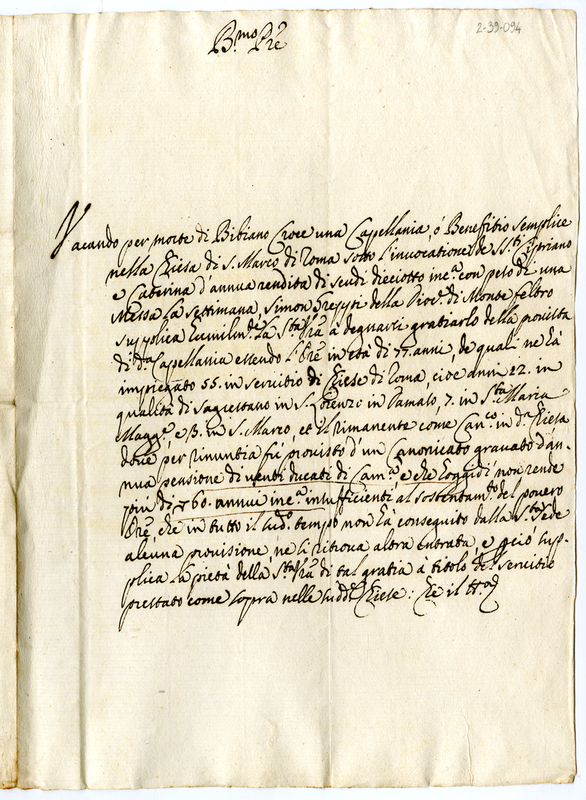 2-39-094
B.mo Pre
Vacando per morte di Bibiano Croce una Capellania, ó Benefitio semplice
nella Chiesa di S. Marco di Roma sotto l'invocatione de SS.ti Cipriano
e Caterina d'annua rendita di scudi dieciotto in c.a con peso di una
Messa la settimana, Simon della Dioc. di Monte feltro
supplica humilm.te la S.tà V.ra à degnarsi gratiarlo della provista
di d.a Capellania essendo l'Ore in età di 77. anni, de quali ne hà
impiegato 55. in servitio di Chiese di Roma, cioe anni 22. in
qualità di Sagrestano in S. Lorenzo in Damaso, 7. in S.ta Maria
Magg.e e 3. in S. Marco, et il rimanente come Can.co in d.a Chiesa
dove per rinuntia fù provisto d'un Canonicato gravato d'an-
nua pensione di venti ducati di Cam.a e che hoggidi non rende
piú di 60. annui in c.a insufficienti al sostentam.to del povero
Ore, che in tutto il sud.o tempo non hà conseguito dalla S.ta Sede
alcuna provisione, ne si ritrova altra Entrata, e p ciò sup-
plica la pietà della S.tà V.ra di tal gratia à titolo del servitio
prestato come sopra nelle sud.e Chiese: Che il tt.o